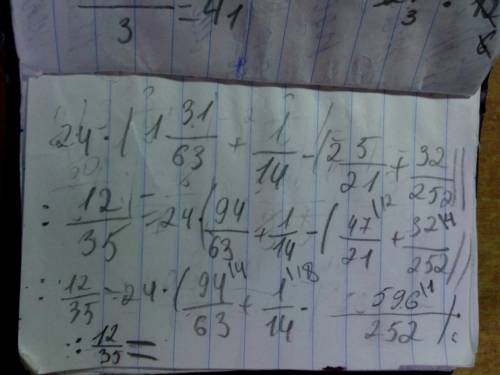 3 = 41
3 ·
24 · ( 1 31/63 + 1/14 - ( 2 5/21 + 32/252 ))
: 12/35 = 24 · ( 94/63 + 1/14 - ( 47/21 + 32/252 ))
: 12/35 = 24 · ( 94/63 + 1/14 - 596/252 ) :
: 12/35 =